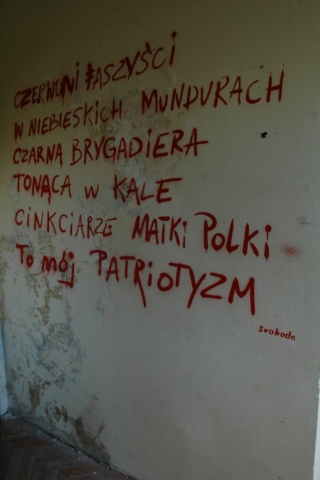 CZERWONI FASZYŚCI
W NIEBIESKICH MUNDURACH
CZARNA BRYGADIERA
TONĄCA W KALE
CINKCIARZE MATKI POLKI
TO MÓJ PATRIOTYZM
Svoboda